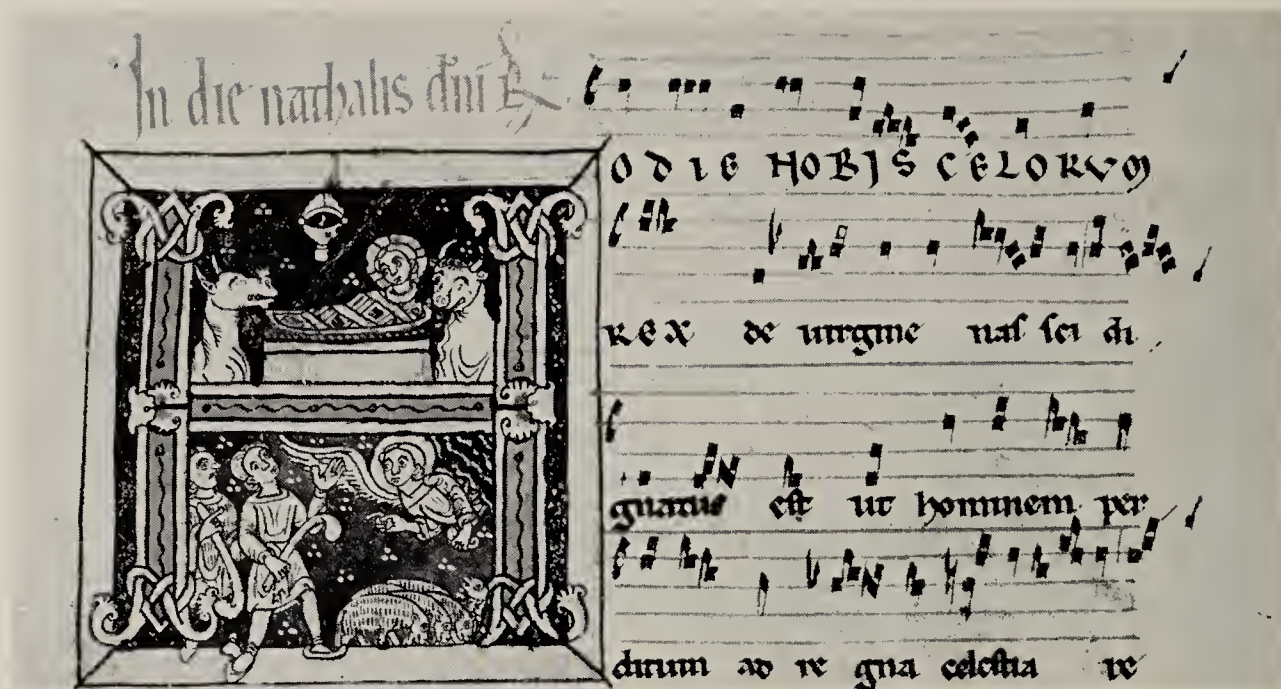 In die nathalis dñi ℟
ODIE NOBIS CELORVM
REX de uirgine nas sci di
gnatus est ut hominem per
ditum ad re gna celestia re